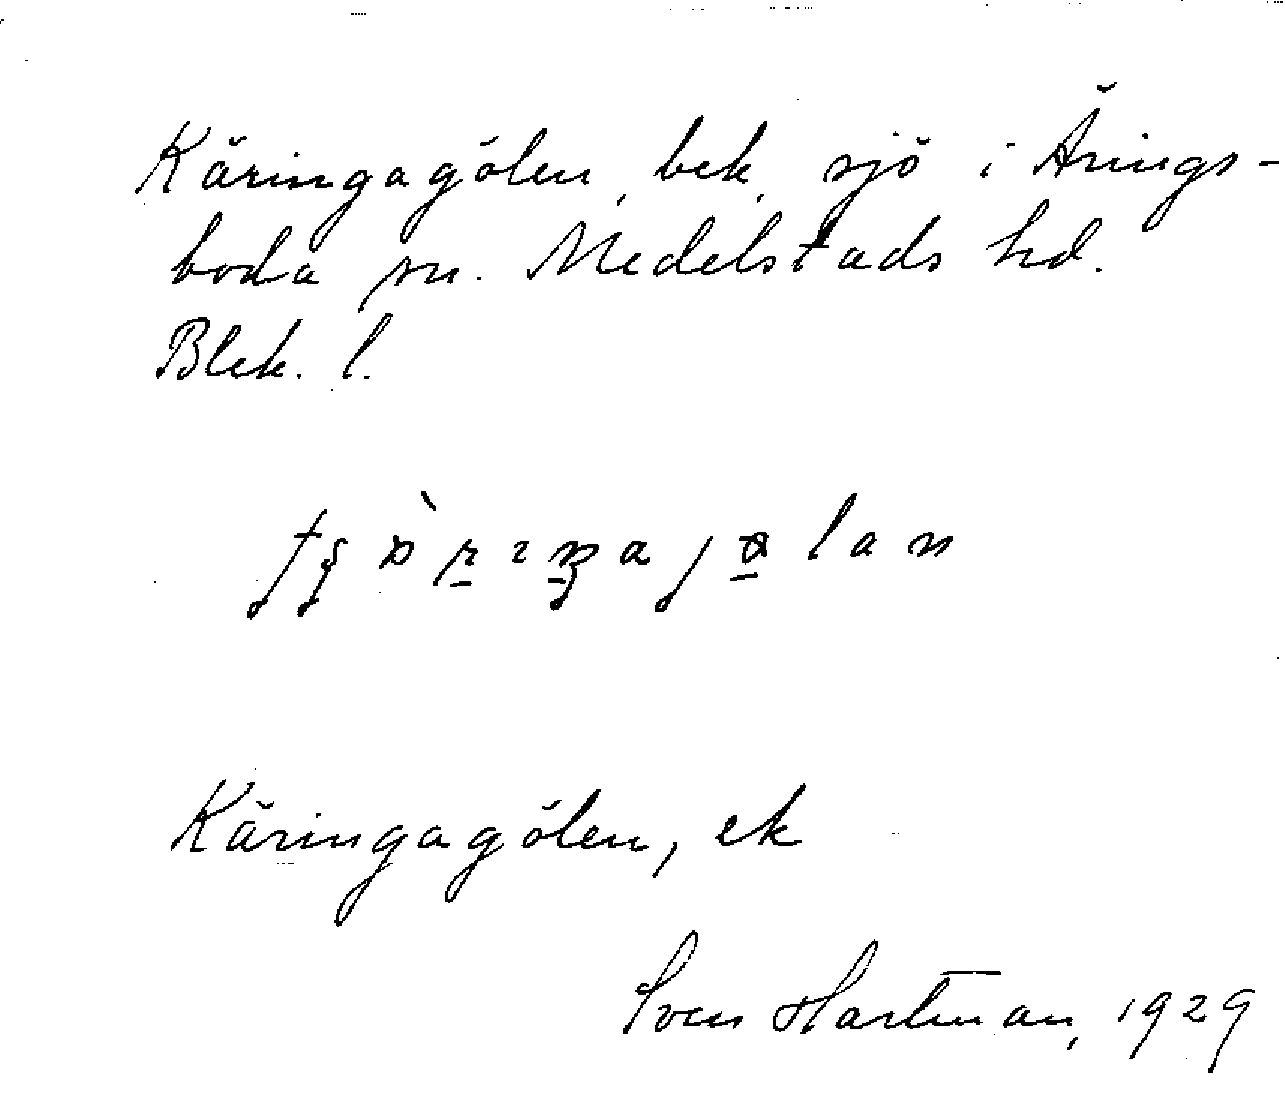 Käringagölen, bek, sjö i Ärings-
boda sn. Medelstads hd.
Blek. l.
Käringagölen, ek
Sven Hartman, 1929